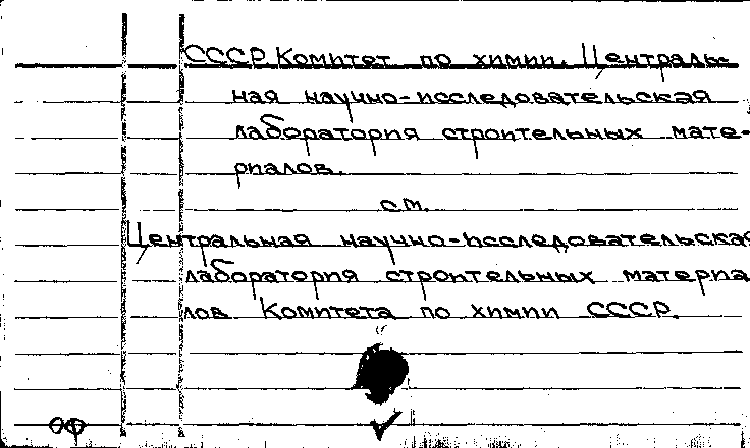 СССР Комитет по химии. Централь-
ная научно-исследовательская
лаборатория строительных мате-
риалов.
см.
Центральная научно-исследовательская
лаборатория строительных материа
лов Комитета по химии СССР.
ОФ